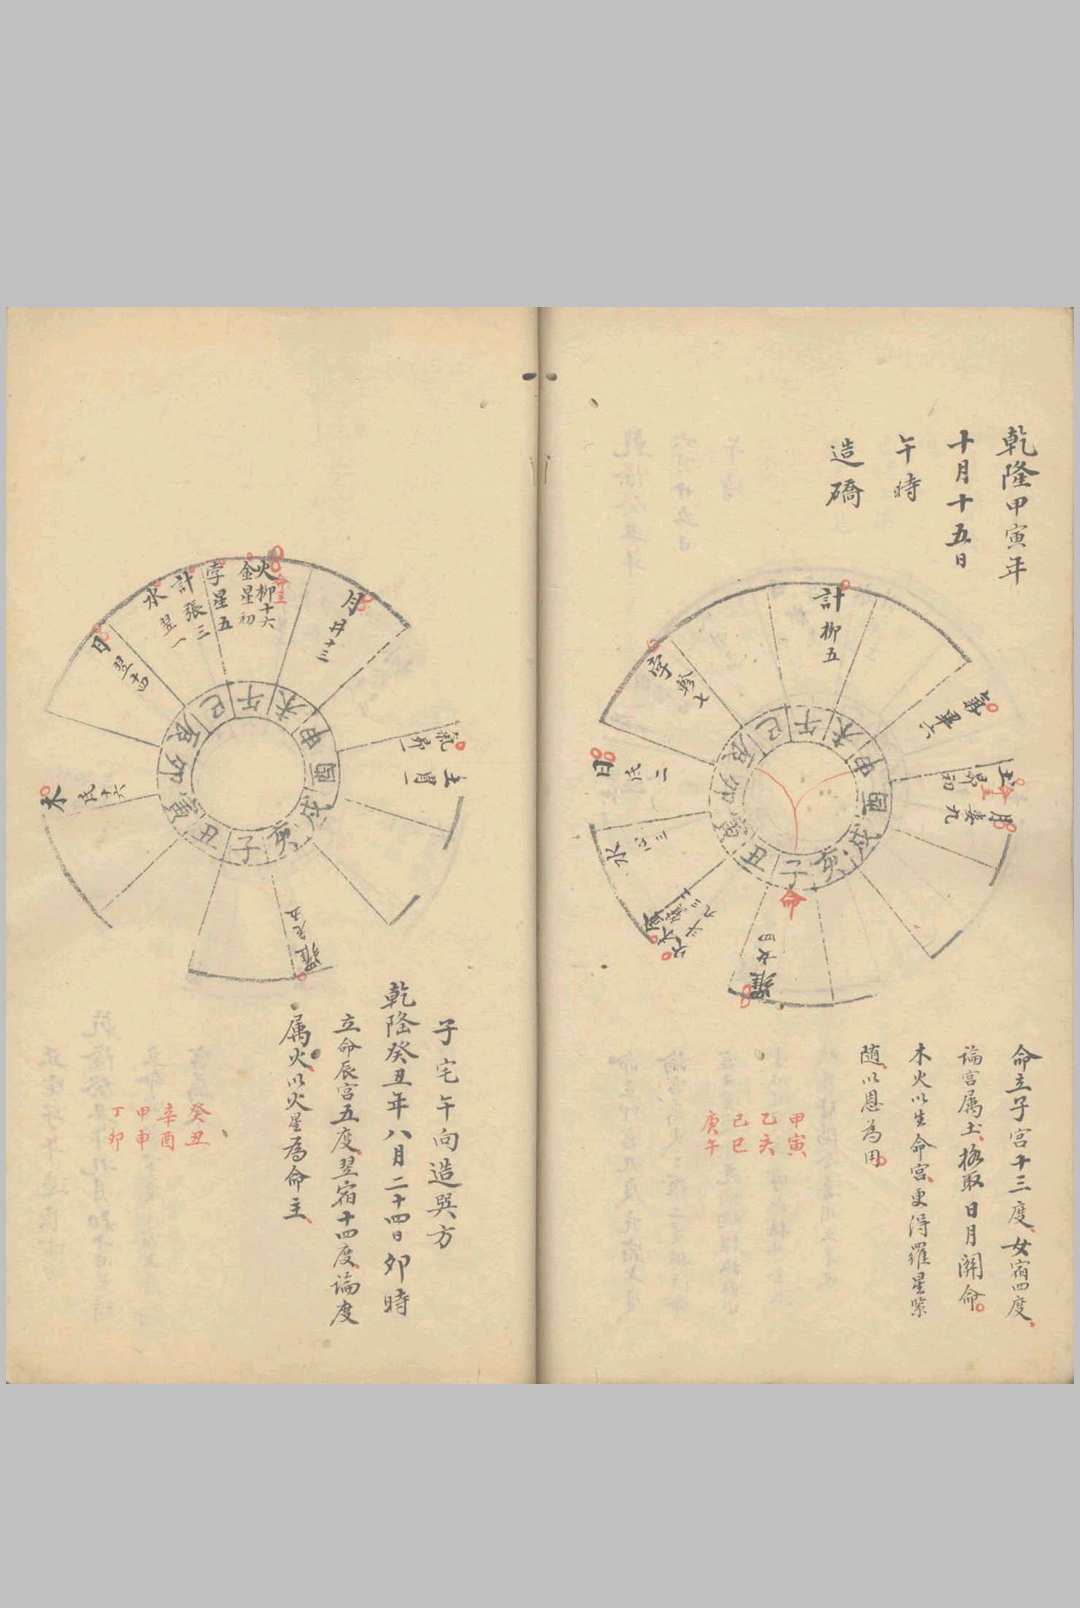 乾隆甲寅年
十月十五日
午時
造礄
計 柳五
孛 軫七
日 氐二
水
羅 女四
月 婁九
命
巳
午
未
申
酉
戌
亥
子
丑
寅
卯
辰
命立子宮十三度女宿四度
論宮属土格取日月關命
木火以生命宮更得羅星緊
随以恩為用
甲寅
乙亥
己巳
庚午
月 井十三
火柳十六
金星初
孛星五
計張三
水翌一
日翌十四
木氐十六
命主
巳
午
未
申
酉
戌
亥
子
丑
寅
卯
辰
子宅午向造巽方
乾隆癸丑年八月二十四日卯時
立命辰宮五度翌宿十四度論度
属火以火星為命主
癸丑
辛酉
甲申
丁卯